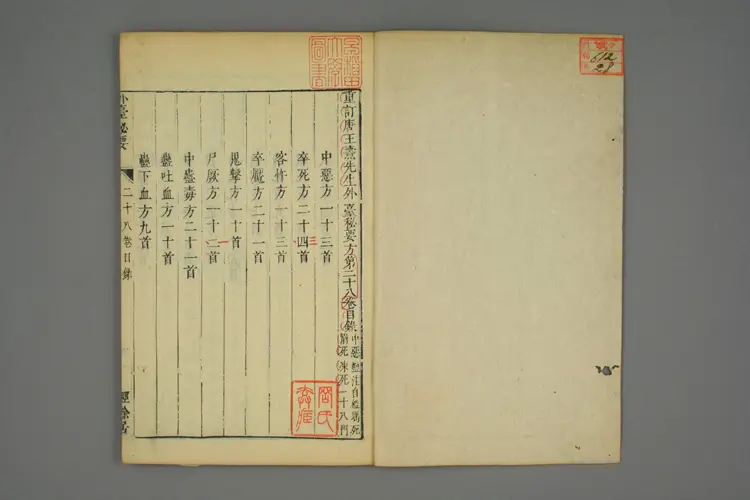 重訂唐王燾先生外臺秘要方第二十八卷目錄
中惡 蠱注自縊 暍死
溺死 凍死一十八門
中惡方一十三首
卒死方二十四首
三
客忤方一十三首
卒魘方二十一首
鬼擊方一十首
尸厥方一十二首
一
中蠱毒方二十一首
蠱吐血方一十首
蠱下血方九首
外臺秘要
二十八卷目錄
經餘居
612
28